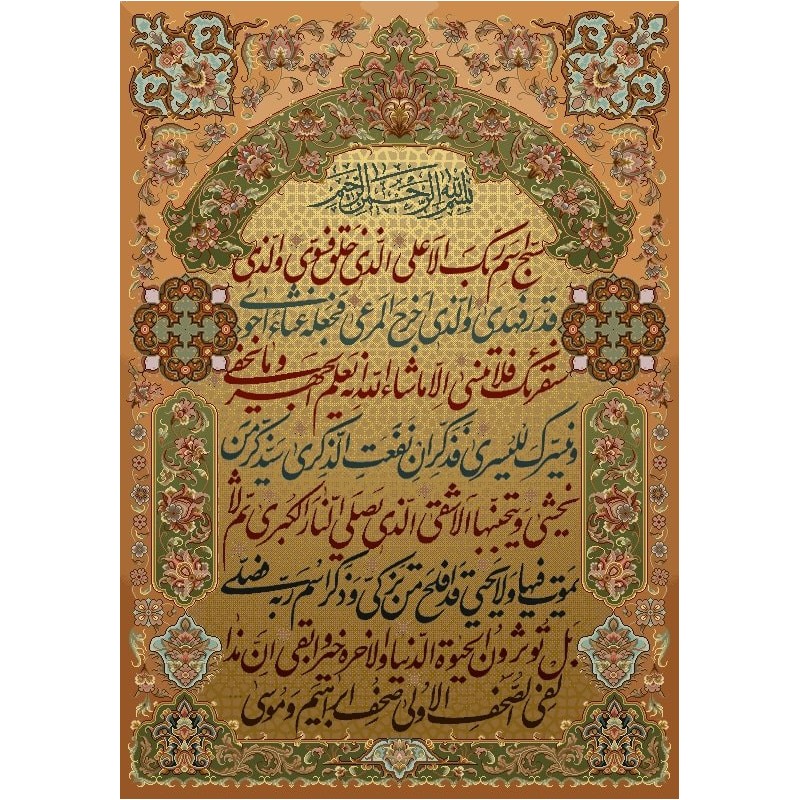 بسم الله الرحمن الرحیم
سبّح اسم ربّک الاعلی الّذی خلق فسوّی والّذی
قدّر فهدی والّذی اخرج المرعی فجعله غثاء احوی
سنقرئک فلا تنسی الّا ماشاء اللّه انّه یعلم الجهر وما یخفی
ونیسّرک للیسری فذکّر ان نفعت الذّکری سیذّکّر من
یخشی ویتجنّبها الاشقی الّذی یصلی النّار الکبری ثمّ لا
یموت فیها ولا یحیی قد افلح من تزکّی وذکر اسم ربّه فصلّی
بل تؤثرون الحیوة الدّنیا والاخرة خیر وابقی انّ هذا
لفی الصّحف الاولی صحف ابراهیم وموسی